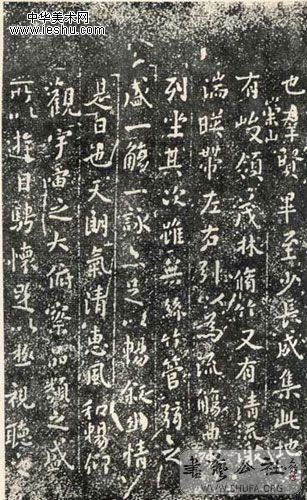 中华美术网
www.leshu.com
也羣賢畢至少長咸集此地
有崇山峻領茂林脩竹又有清流激
湍暎帶左右引以為流觴曲
列坐其次雖無絲竹管弦之
盛一觴一詠亦足以暢敘幽情
是日也天朗氣清惠風和暢仰
觀宇宙之大俯察品類之盛
所以遊目騁懷足以極視聽
書藝公社